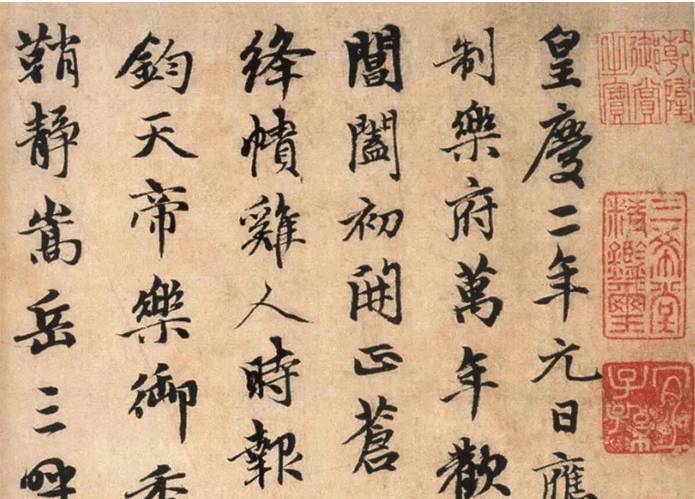 乾隆御賞之寶
三希堂精鑑璽
宜子孫
皇慶二年元日應
制樂府萬年歡
閶闔初開正蒼
絳幘雞人時報
鈞天帝樂御香
鞘靜嵩岳三呼